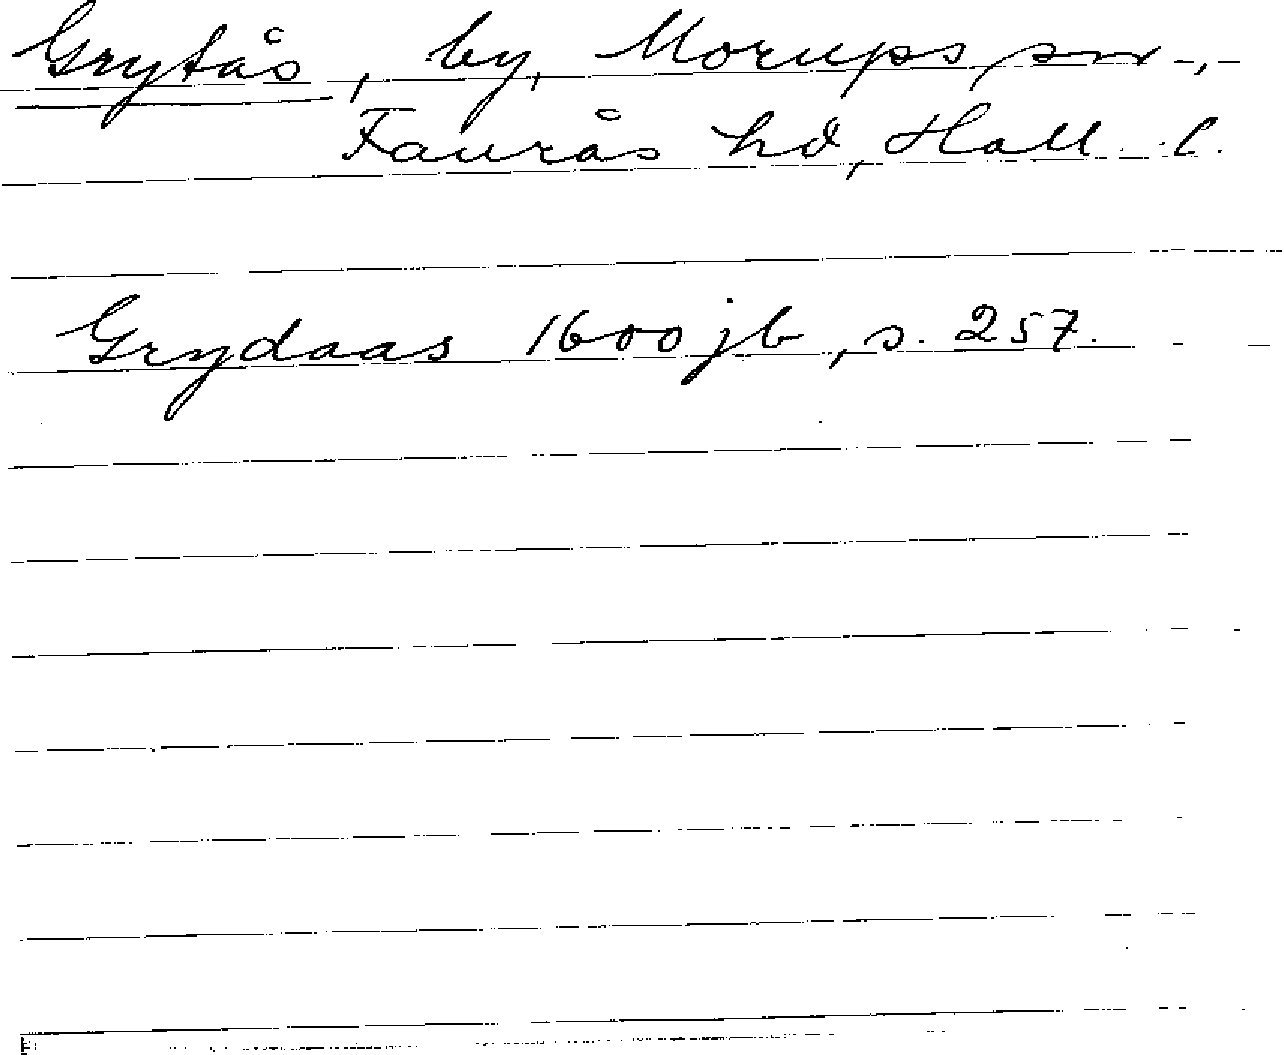 Grytås, by, Morups sn,
Faurås hd, Hall. l.
Grydaas 1600 jb, s. 257.